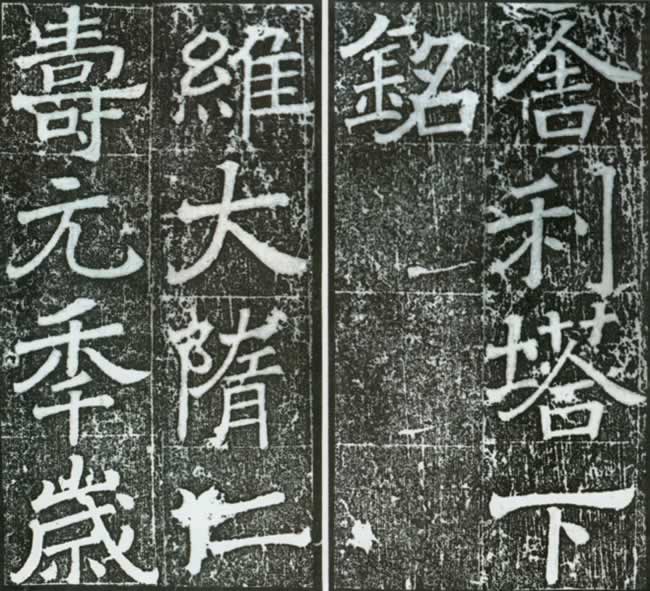 舍利塔下
銘
維大隋仁
壽元秊歲